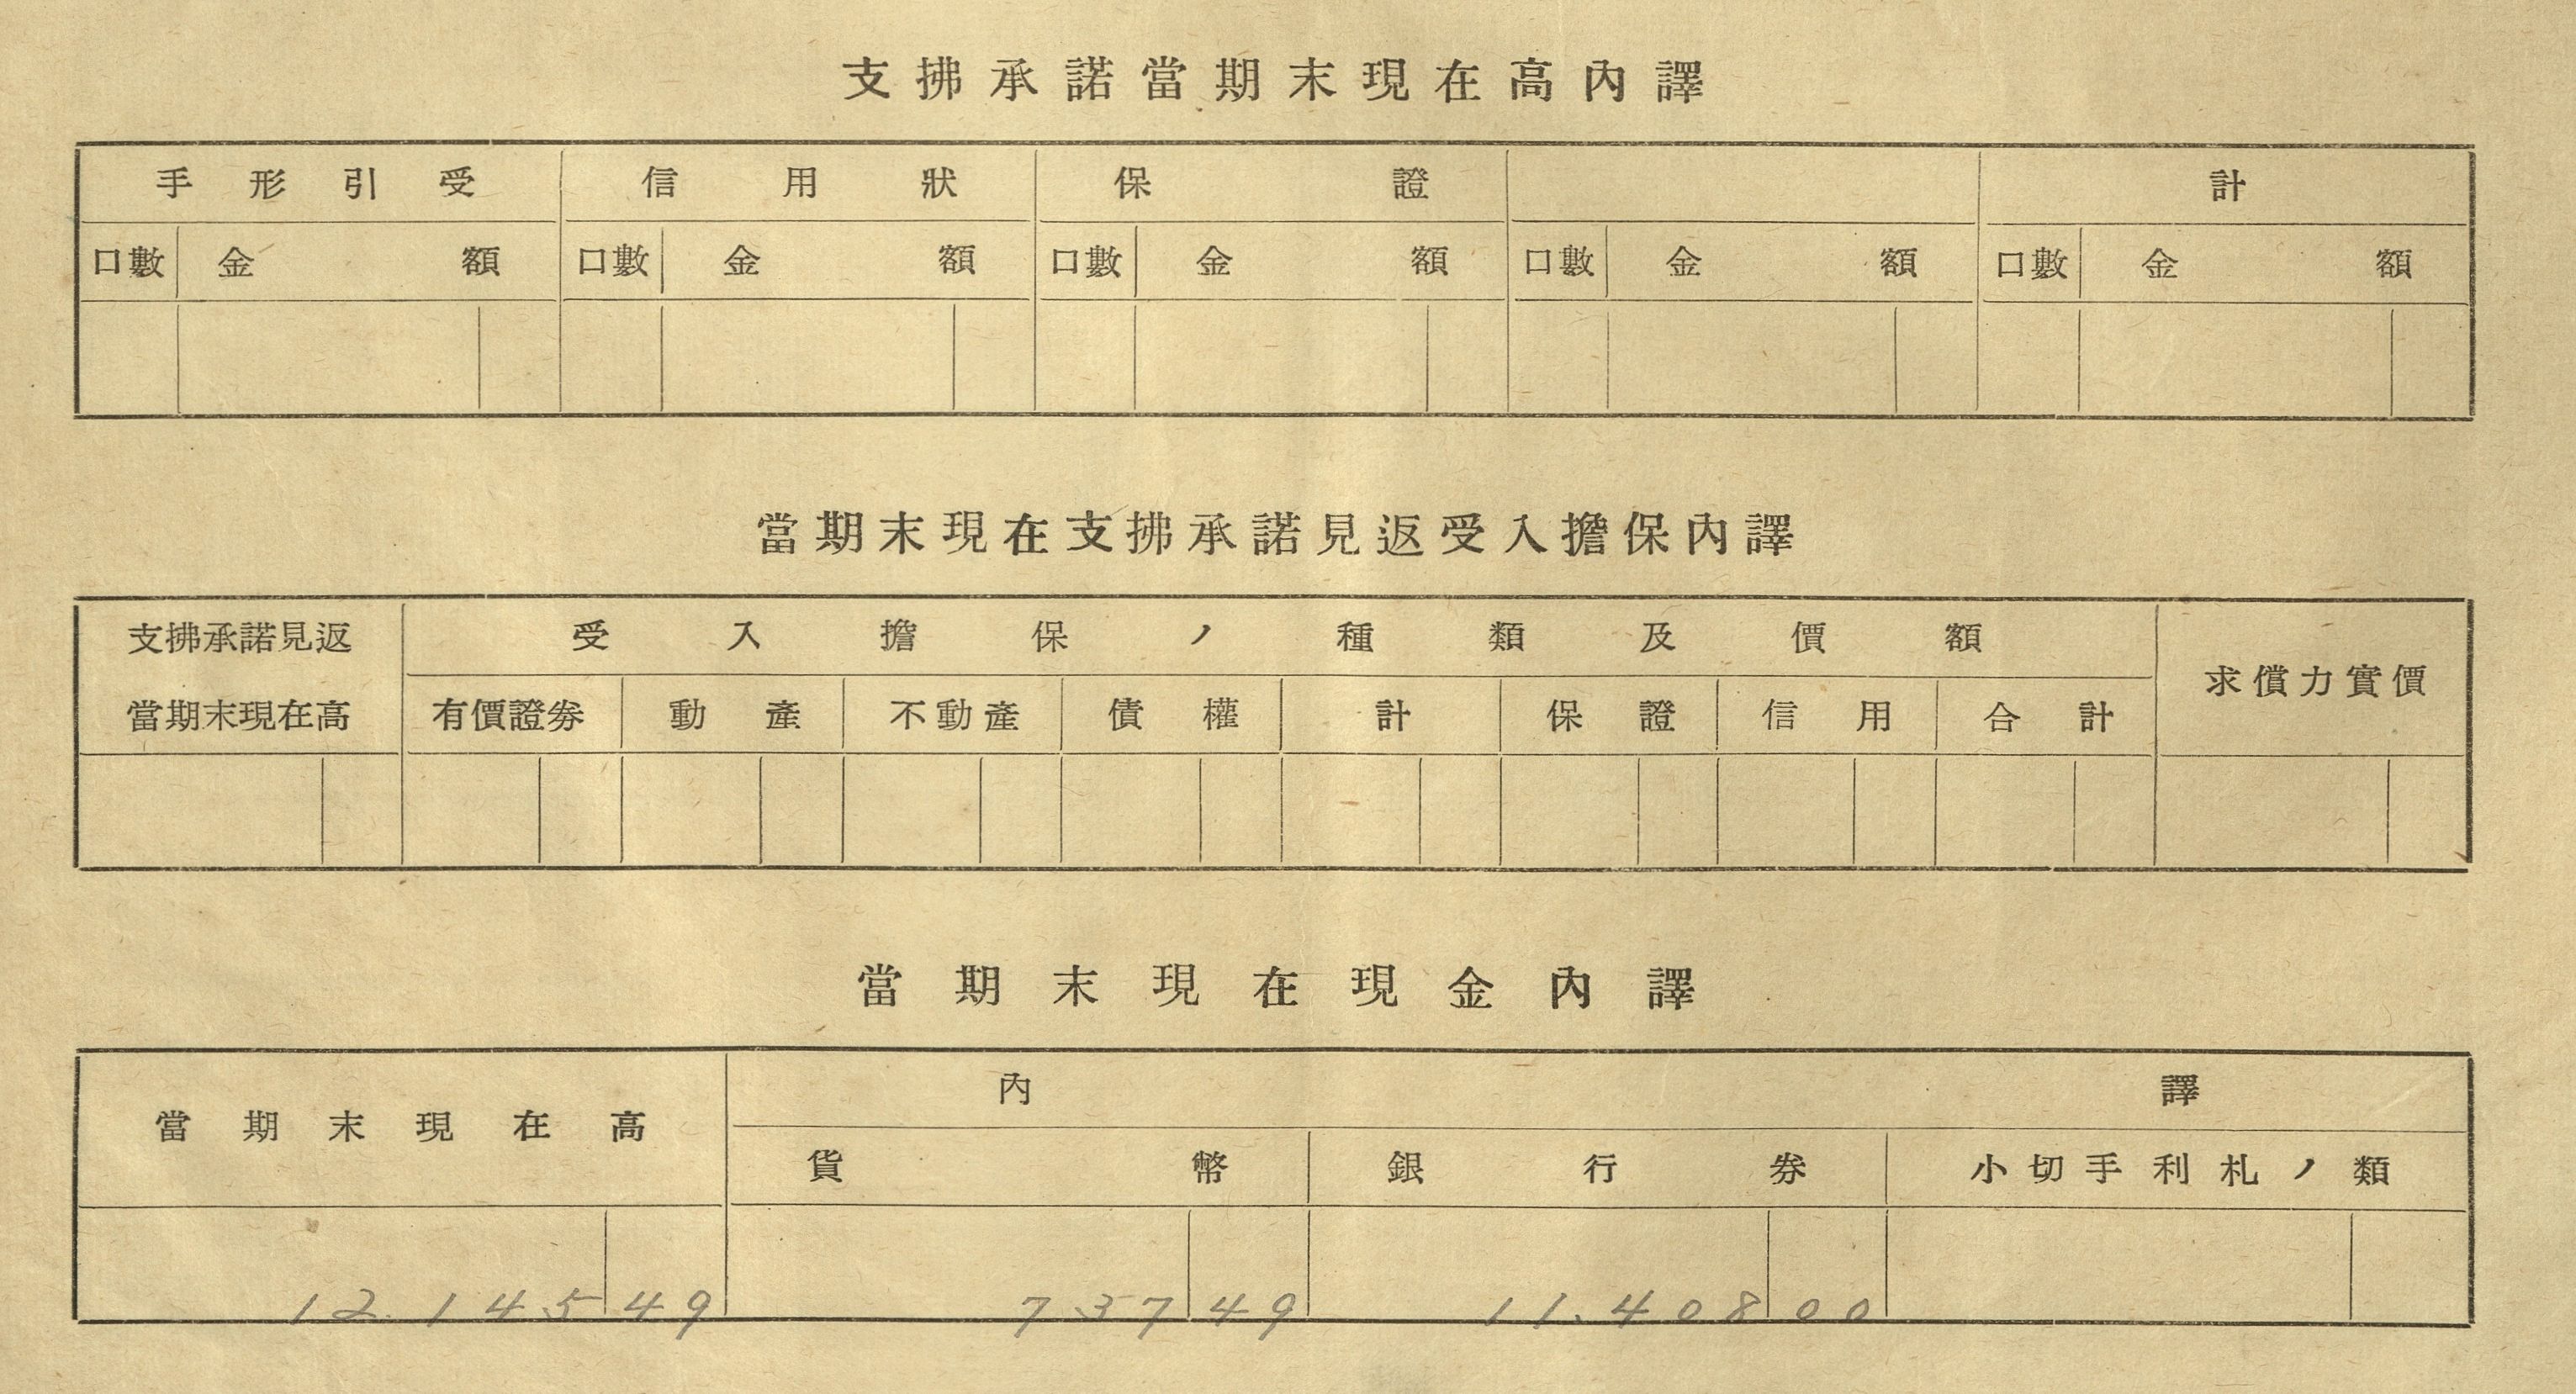 支拂承諾當期末現在高內譯
手形引受 信用狀 保證 計
口數 金額 口數 金額 口數 金額 口數 金額 口數 金額
當期末現在支拂承諾見返受入擔保內譯
支拂承諾見返 受入擔保ノ種類及價額
當期末現在高 有價證券 動產 不動產 債權 計 保證 信用 合計 求償力實價
當期末現在現金內譯
當期末現在高 內譯
貨幣 銀行券 小切手利札ノ類
12.145 49 737 49 11.408 00